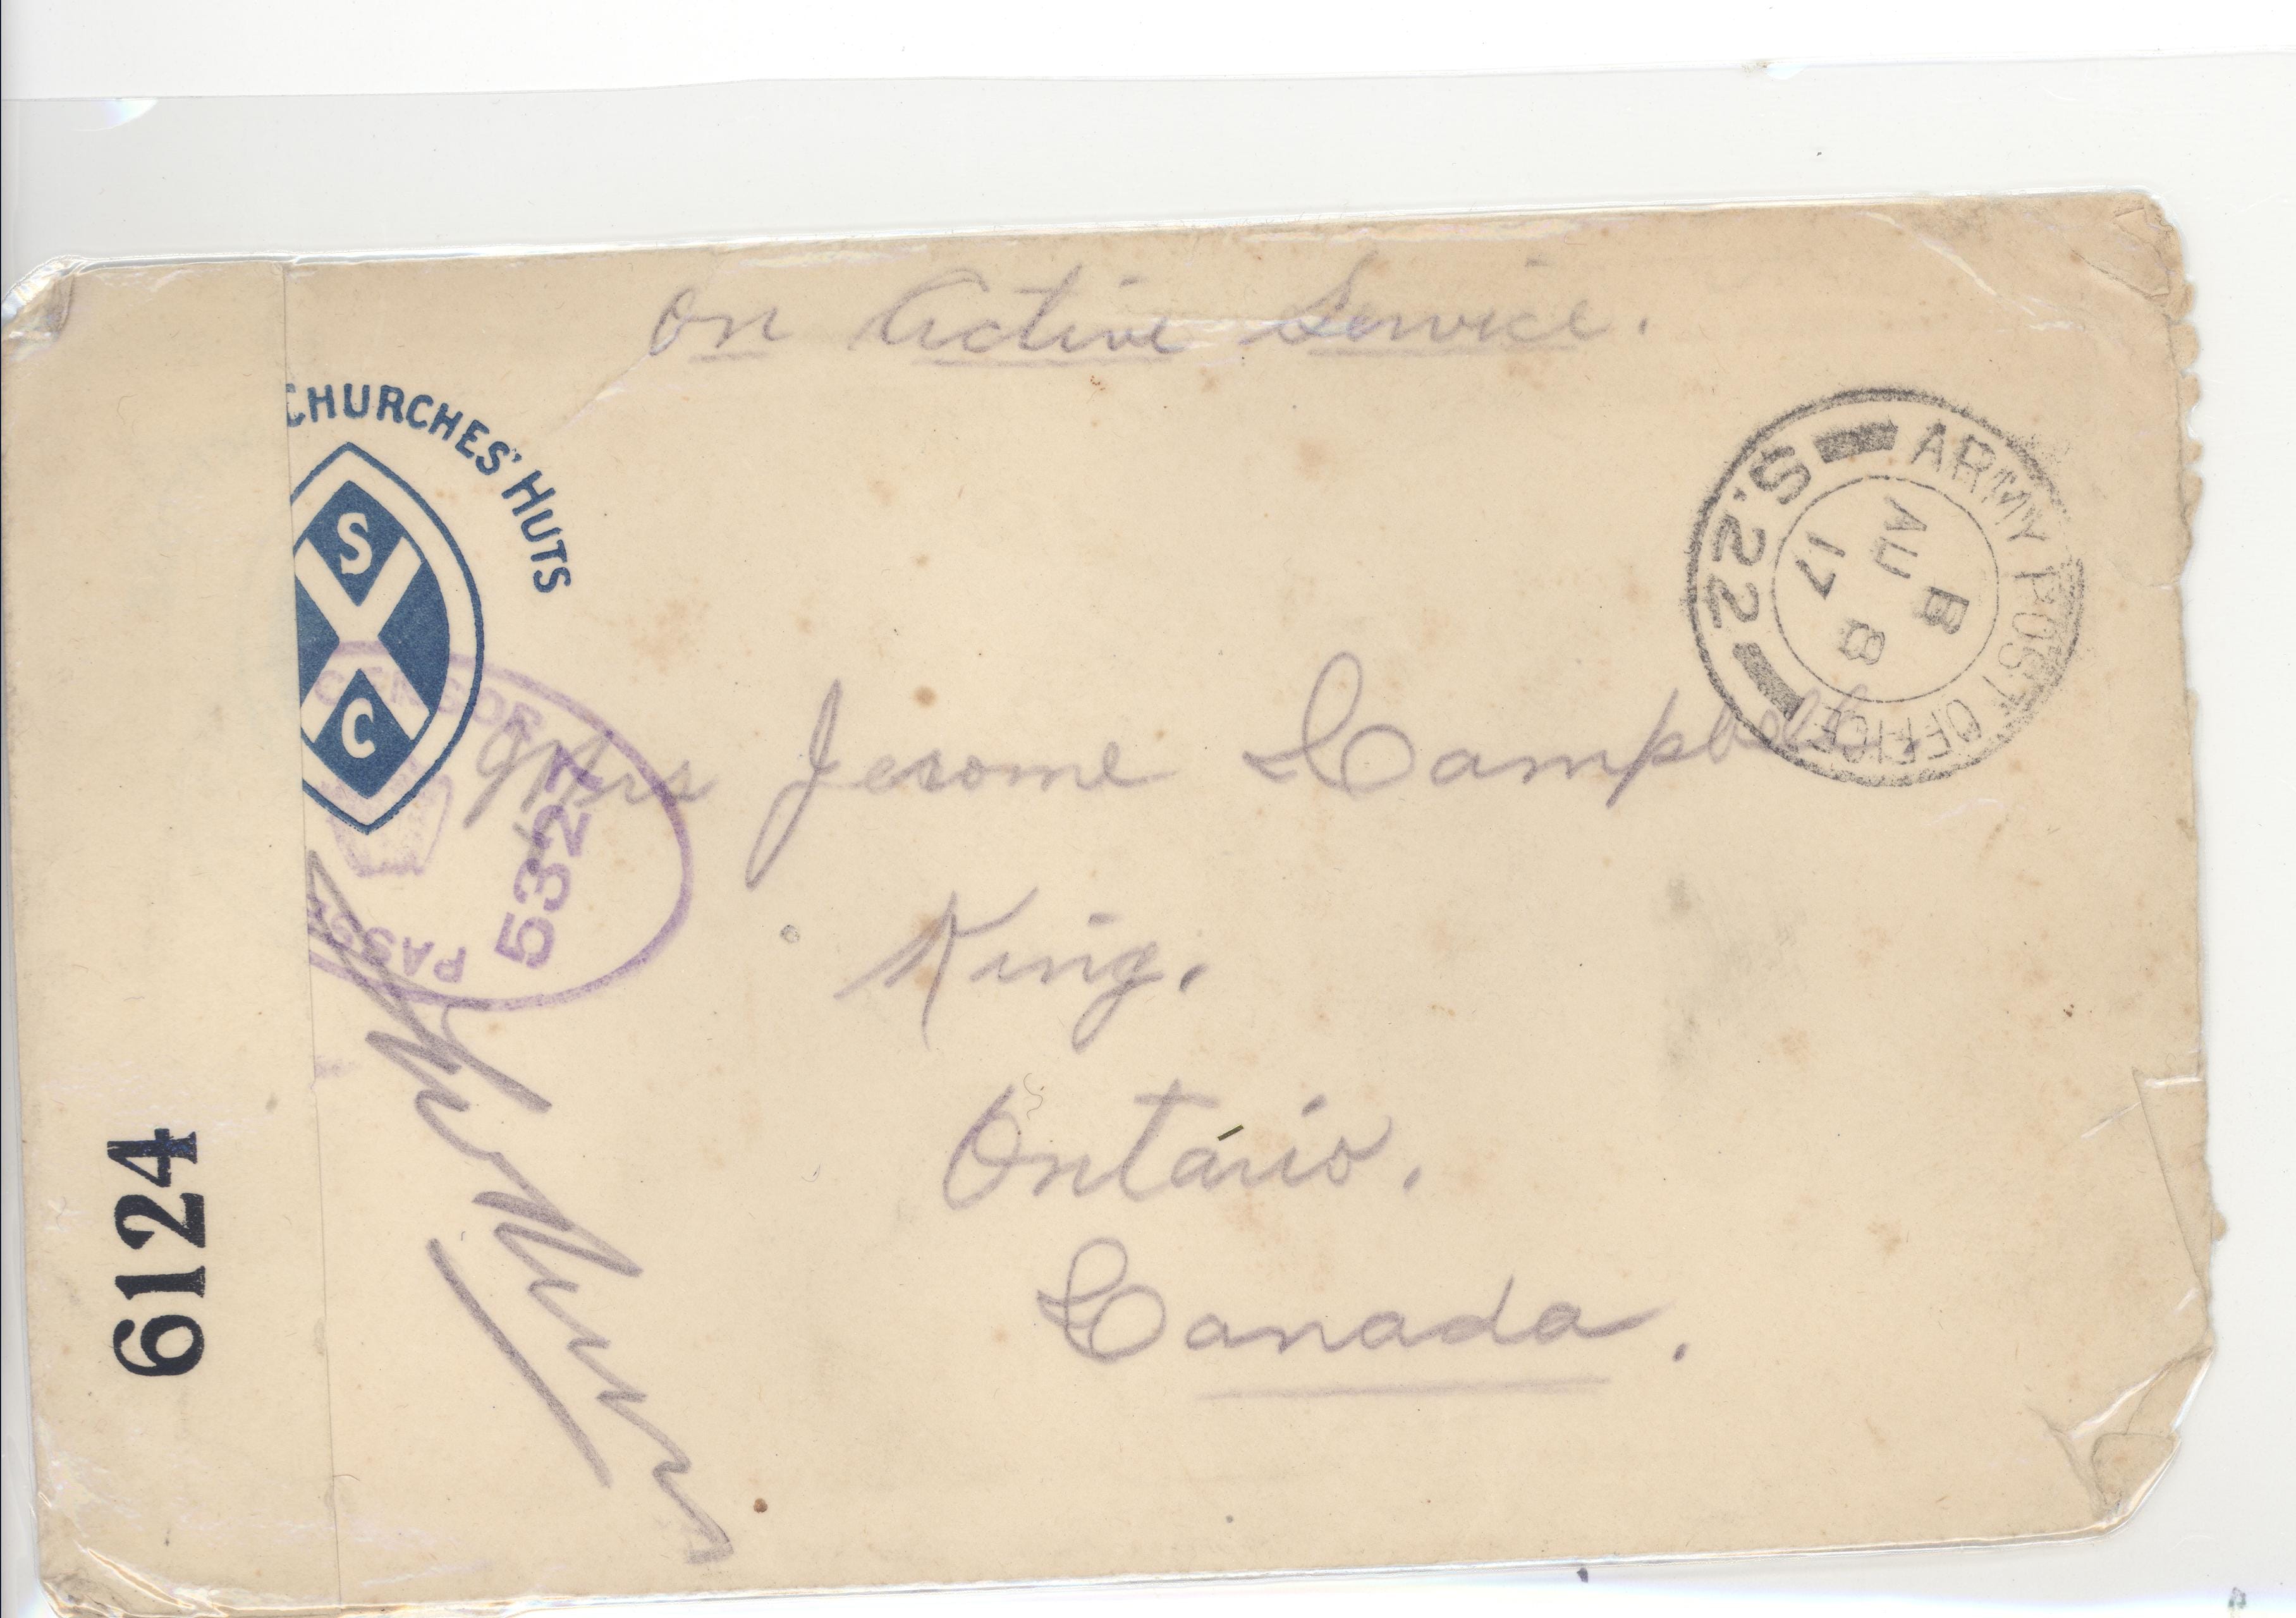 On Active Service.
CHURCHES' HUTS
S
C
ARMY POST OFFICE
S.22
B
AU 8
17
CENSOR
5327
PASSE
Mrs Jerome Campbell
King.
Ontario.
Canada.
6124